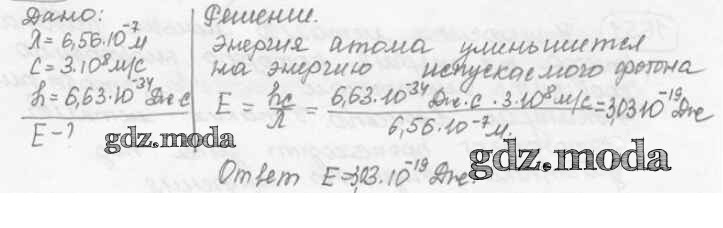 Дано:
λ = 6,56·10⁻⁷ м
c = 3·10⁸ м/с
h = 6,63·10⁻³⁴ Дж с
E - ?
Решение.
Энергия атома уменьшится
на энергию испускаемого фотона
E = hc/λ = 6,63·10⁻³⁴ Дж·с · 3·10⁸ м/с / 6,56·10⁻⁷ м. = 3,03·10⁻¹⁹ Дж
Ответ E = 3,03·10⁻¹⁹ Дж.
gdz.moda
gdz.moda